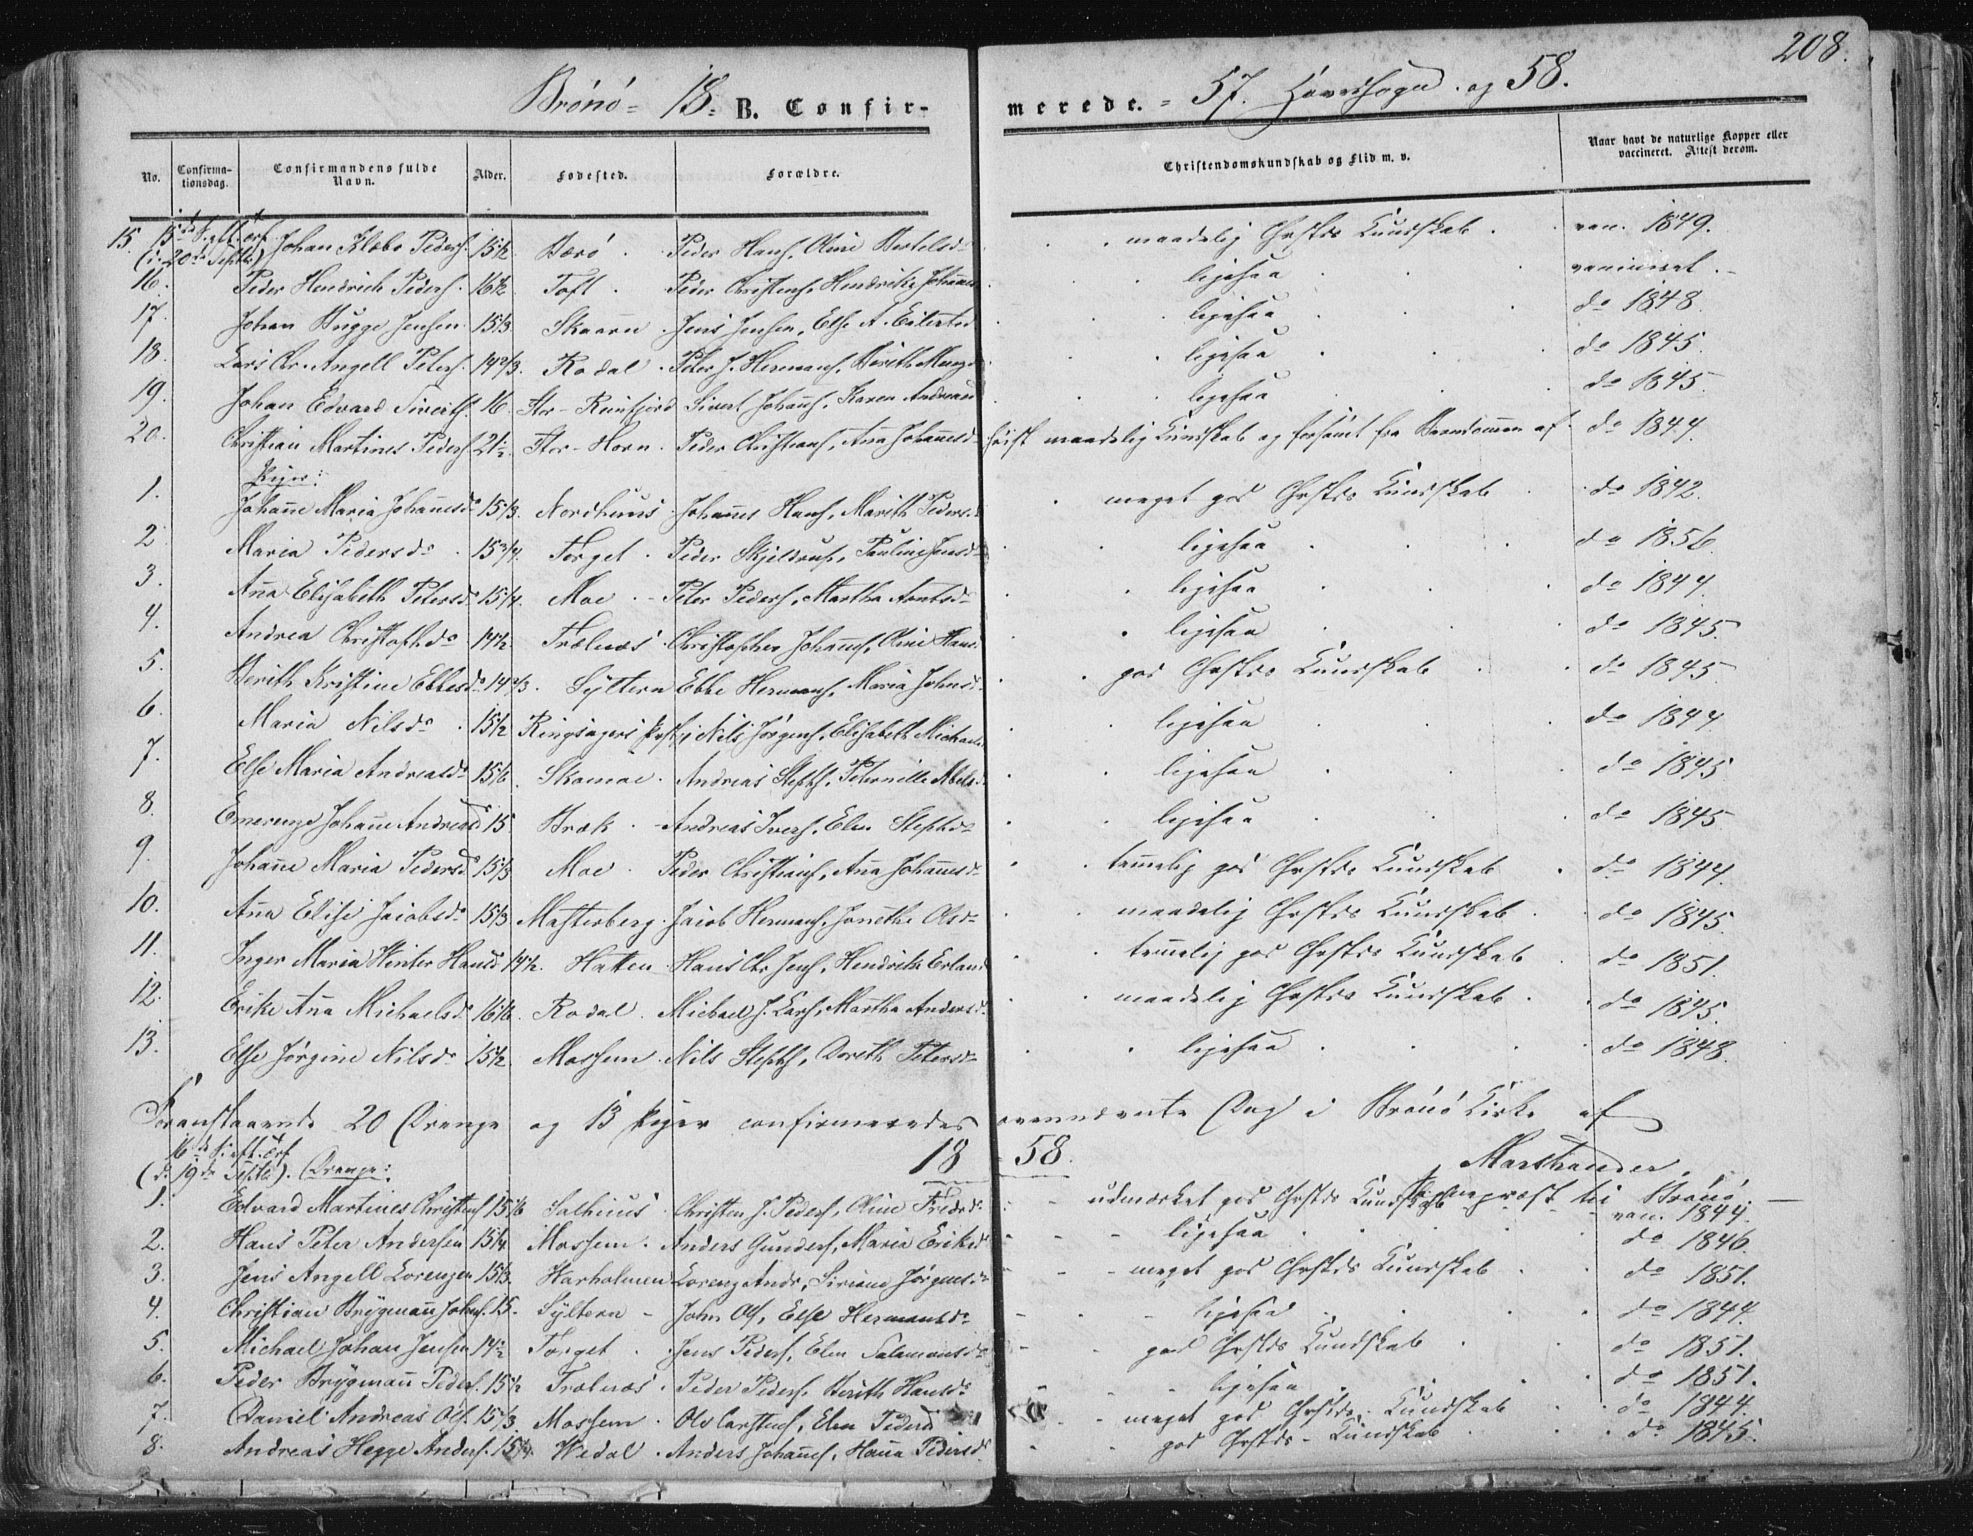 208.
Brönö = 18. B. Confirmerede. = 57. Hovedsogn. og 58.
No. Confirmationsdag. Confirmandens fulde Navn. Alder. Fødested. Forældre. Christendomskundskab og Flid m. v. Naar havt de naturlige Kopper eller vaccineret. Attest derom.
15. 15de S. eft. Trf. (: 20de Septbr) Johan Klæbo Peders. 15½ Bærö. Peder Hans., Oline Bertelsd. maadelig Chrstds Kundskab. vac. 1849.
16. Peder Hendrich Peders. 16½ Toft. Peder Christens, Hendrikke Johannesd ligesaa vaccineret.
17. Johan Bugge Jensen 15⅓. Skaarn. Jens Jensen, Else A. Eilertsd ligesaa do 1848.
18. Lars Chr. Angell Peters. 14⅔. Rodal. Peter J. Hermans, Berith ligesaa do 1845.
19. Johan Edvard Siverts. 16. Stor-Rensfjord Sivert Johans, Karen Andreasd ligesaa do 1845.
20. Christian Martines Peders 21½. Stor-Horn. Peder Christians, Ana Johanesd. höist maadelig Kundskab og forsömt fra Barndommen af. do 1844.
Piger:
1. Johane Maria Johanesdr 15⅓. Nordhuus Johanes Hans, Marith Pedersd meget god Chrstds Kundskab do 1842.
2. Maria Pedersdr 15¾. Torget. Peder Skjeldrup, Pauline Jensd ligesaa do 1856.
3. Ana Elisabeth Petersdr 15¼. Moe Peter Peders, Martha Arntsd. ligesaa do 1844.
4. Andrea Christophdr 14½. Trælnæs Christopher Johans, Oline Hansd ligesaa do 1845.
5. Berith Kristine Ebbesdr 14⅔. Syltern Ebbe Hermans, Maria Johnsd. god Chrstds Kundskab do 1845
6. Maria Nilsdr 15½ Ringsagers Nils Jörgens, Elisabeth Michaelsd ligesaa do 1844.
7. Else Maria Andreasdr 15⅙. Skomoe. Andreas Stephs, Peternille Abelsd ligesaa do 1845
8. Emerenze Johane Andreasd 15 Bræk. Andreas Ivers, Elen Stephd. ligesaa do 1845
9. Johane Maria Pedersdr 15⅓ Moe. Peder Christians, Ana Johanesd. temelig god Chrstds Kundskab do 1844.
10. Ana Elise Jacobsdr 15⅓ Masterberg. Jacob Hermans, Jonetha Olsd. maadelig Chrstds Kundskab do 1845.
11. Inger Maria Winter Hansd 14½. Hatten. Hans Chr Jens, Hendrikke Erlandsd temelig god Chrstds Kundskab do 1851.
12. Erike Ana Michaelsdr 16⅙. Rodal. Michael J. Lars, Martha Andersd. maadelig Chrstds Kundskab do 1845.
13. Else Jörgine Nilsdr 15½. Mossem. Nils Stephs, Doreth Petersd. ligesaa do 1848.
Foranstaaende 20 Drenge og 13 Piger confirmeredes ovennævnte Dag i Brönö Kirke af
Marstrander,
Sognepræst til Brönö.
16de S. eft. Trf (d. 19de Septbr). Drenge: 18 58.
1. Edvard Martines Christens 15⅙ Salhuus Christen J. Peders, Oline Fredsd. udmærket god Chrstds Kundskab vac. 1844.
2. Hans Peter Andersen 15¼. Mossem. Anders Gunders, Maria Eriksd ligesaa do 1846.
3. Jens Angell Lorenzen 15⅓. Harholmen Lorenz Andr, Siriane Jörgensd. meget god Chrstds Kundskab do 1851.
4. Christian Brygmann Johns. 15. Syltern John Ols, Else Hermansd. ligesaa do 1844.
5. Michael Johan Jensen 14½ Torget. Jens Peders, Elen Salamonsd. god Chrstds Kundskab do 1851.
6. Peder Brygmann Peders. 15½ Trælnæs. Peder Peders. Berith Hansd. ligesaa do 1851.
7. Daniel Andreas Ols. 15⅓. Mossem. Ole Carstens, Elen Pedersd meget god Chrstds Kundskab do 1844.
8. Andreas Hegge Anders. 15¼ Wedal. Anders Johans, Hana Pedersd. god Chrstds Kundskab do 1845.